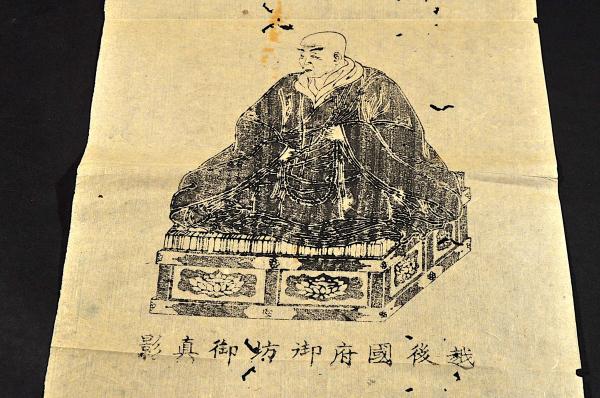 越後國府御坊御真影